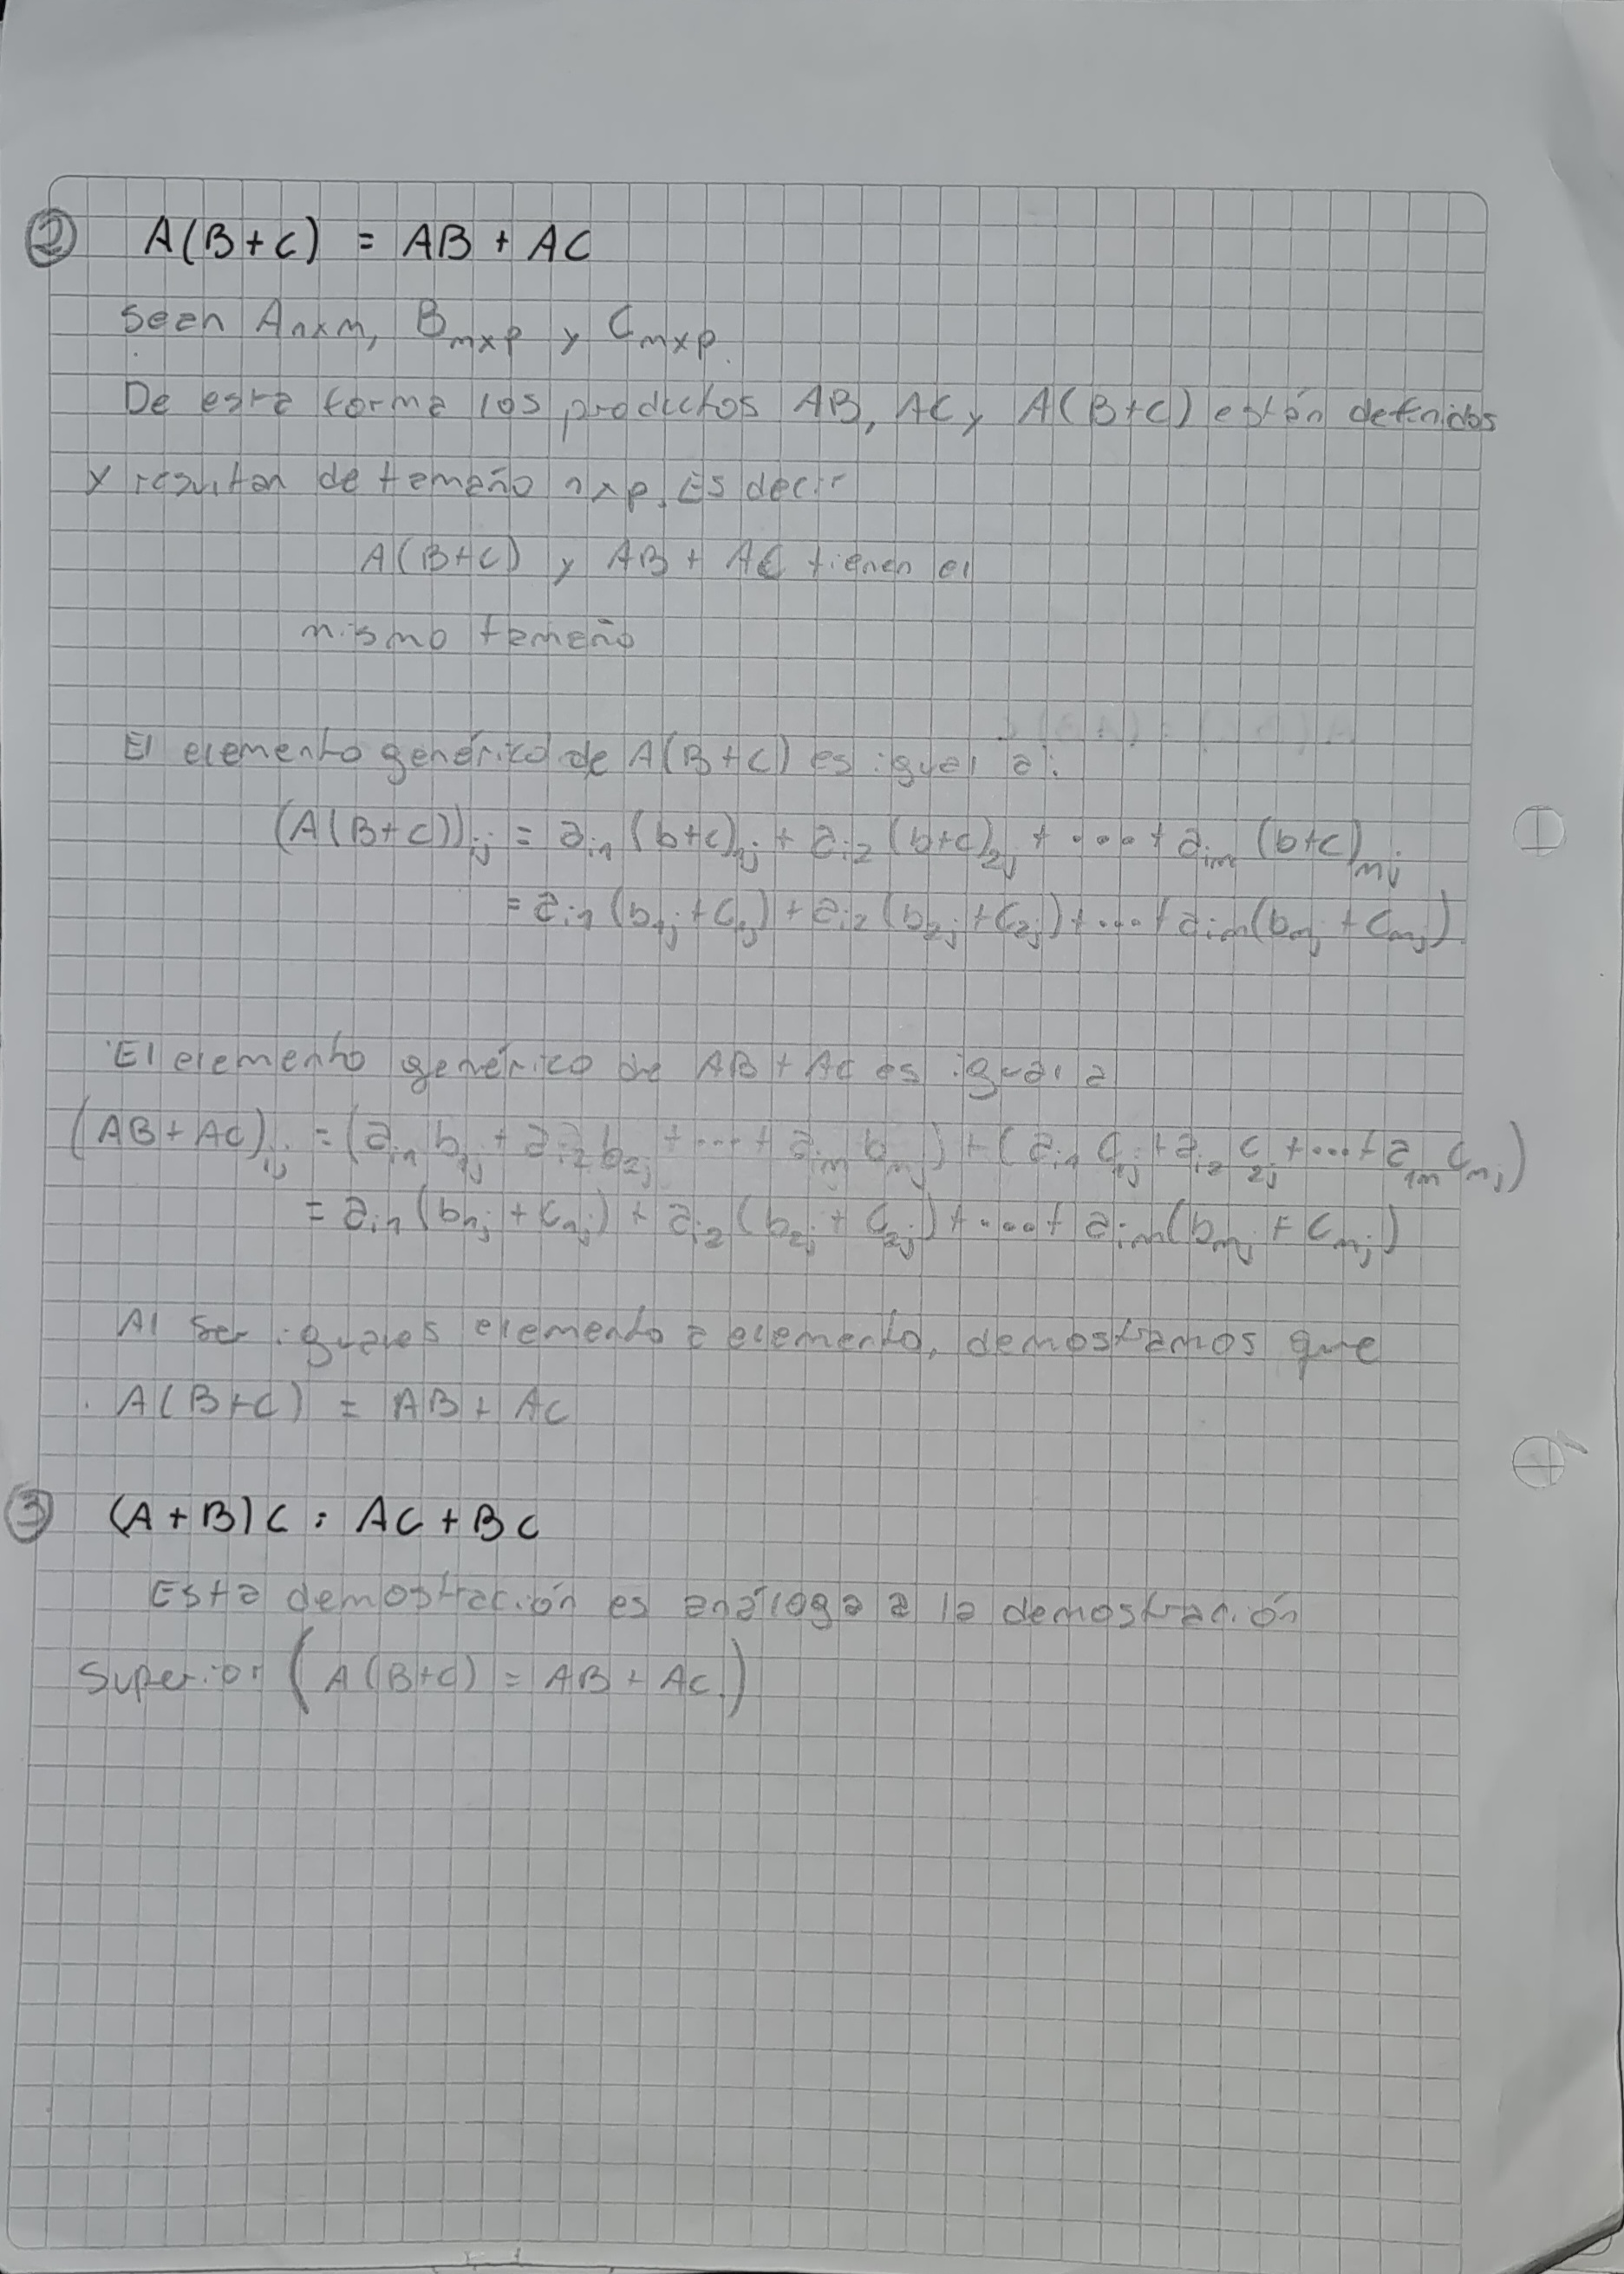 ② A(B+C) = AB + AC
Sean Anxm, Bmxp y Cmxp.
De esta forma los productos AB, AC y A(B+C) están definidos
y resultan de tamaño nxp. Es decir
A(B+C) y AB + AC tienen el
mismo tamaño
El elemento genérico de A(B+C) es igual a:
(A(B+C))ij = ai1 (b+c)1j + ai2 (b+c)2j + ... + aim (b+c)mj
= ai1 (b1j + c1j) + ai2 (b2j + c2j) + ... + aim (bmj + cmj)
El elemento genérico de AB + AC es igual a
(AB + AC)ij = (ai1 b1j + ai2 b2j + ... + aim bmj) + (ai1 c1j + ai2 c2j + ... + aim cmj)
= ai1 (b1j + c1j) + ai2 (b2j + c2j) + ... + aim (bmj + cmj)
Al ser iguales elemento a elemento, demostramos que
A(B+C) = AB + AC
③ (A+B)C = AC + BC
Esta demostración es análoga a la demostración
Superior (A(B+C) = AB + AC.)